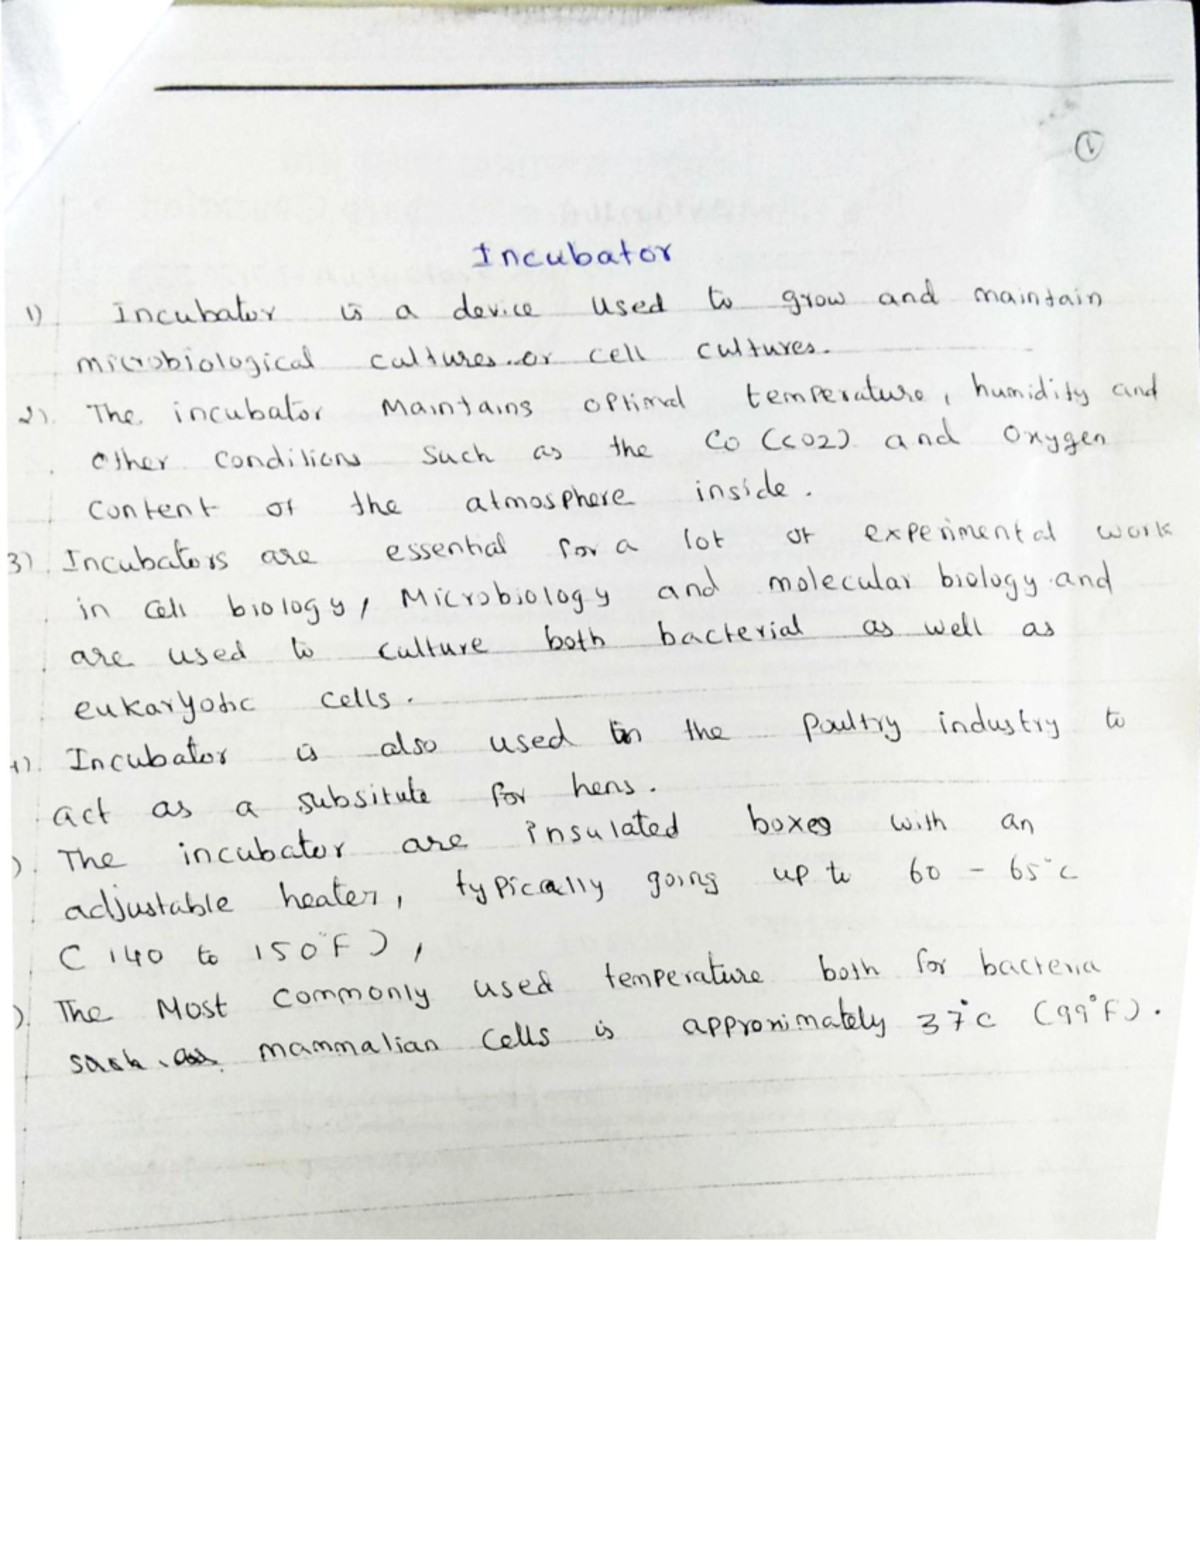 1
Incubator
1) Incubator is a device used to grow and maintain
microbiological cultures or cell cultures.
2). The incubator Maintains optimal temperature, humidity and
other conditions such as the CO (CO2) and Oxygen
content of the atmosphere inside.
3) Incubators are essential for a lot of experimental work
in cell biology, Microbiology and molecular biology and
are used to culture both bacterial as well as
eukaryotic cells.
4). Incubator is also used in the Poultry industry to
act as a subsitute for hens.
). The incubator are insulated boxes with an
adjustable heater, typically going up to 60 - 65°C
(140 to 150°F),
). The Most commonly used temperature both for bacteria
mammalian cells is approximately 37°C (99°F).